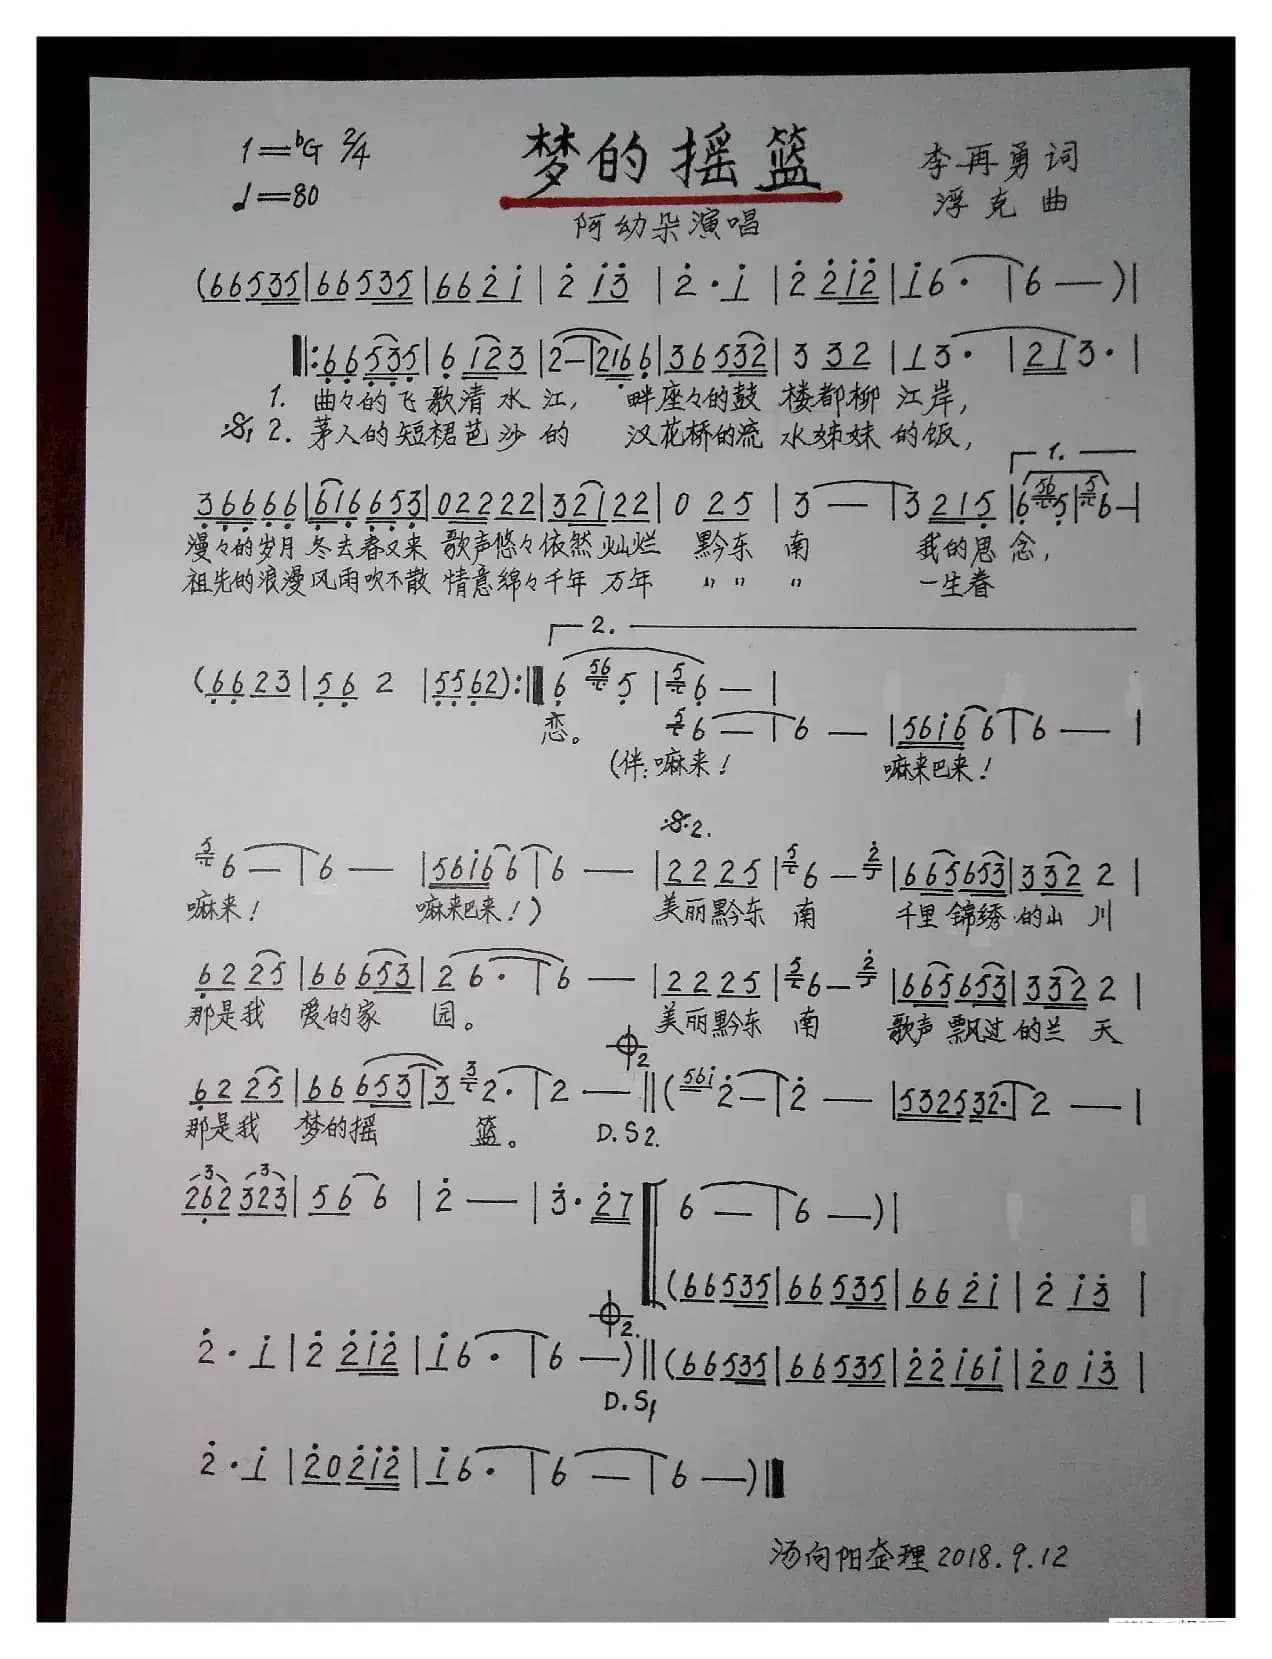 1=♭G 2/4
梦的摇篮
李再勇词
♩=80
浮克曲
阿幼朵演唱
(66535|66535|662̇1̇|2̇ 1̇3̇|2̇·1̇|2̇ 2̇1̇2̇|1̇6·|6—)|
‖:66535|6 123|2—|2166|365332|3 32|13·|213·|
1. 曲々的飞歌清水江, 畔座々的鼓楼都柳江岸,
𝄋1 2. 茅人的短裙芭沙的 汉花桥的流水姊妹的饭,
1.
36666|616653|02222|32122|0 25|3—|3 215|6 56 5|5 6—|
漫々的岁月冬去春又来 歌声悠々依然灿烂 黔东南 我的思念,
祖先的浪漫风雨吹不散 情意绵々千年万年 〃〃 〃 一生眷
2.
(6623|56 2|5562):‖6 56 5|5 6—|
恋。
5 6—|6—|561̇66|6—|
(伴:嘛来! 嘛来巴来!
𝄋2.
5 6—|6—|561̇66|6—|2225|5 6—2̇|665653|3322|
嘛来! 嘛来巴来!) 美丽黔东南 千里锦绣的山川
6225|66653|26·|6—|2225|5 6—2̇|665653|3322|
那是我爱的家园。 美丽黔东南 歌声飘过的兰天
𝄌2
6225|66653|3 3 2·|2—‖(561̇ 2̇—|2̇—|53253 2·|2—|
那是我梦的摇篮。 D.S2.
3 3
262 323|566|2̇—|3̇·2̇7|6—|6—)|
(66535|66535|662̇1̇|2̇ 1̇3̇|
𝄌2.
2̇·1̇|2̇ 2̇1̇2̇|1̇6·|6—)‖(66535|66535|2̇2̇1̇61̇|2̇0 1̇3̇|
D.S1
2̇·1̇|2̇02̇1̇2̇|1̇6·|6—|6—)‖
汤向阳奎理2018.9.12